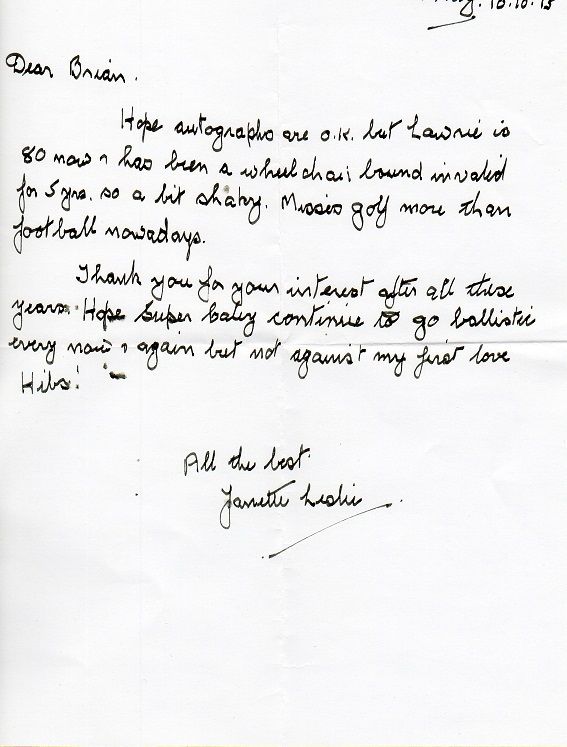 10.10.15
Dear Brian.
Hope autographs are O.K. but Lawrie is
80 now & has been a wheelchair bound invalid
for 5 yrs. so a bit shaky. Misses golf more than
football nowadays.
Thank you for your interest after all these
years. Hope Super Caley continue to go ballistic
every now & again but not against my first love
Hibs!
All the best.
Janette Leslie